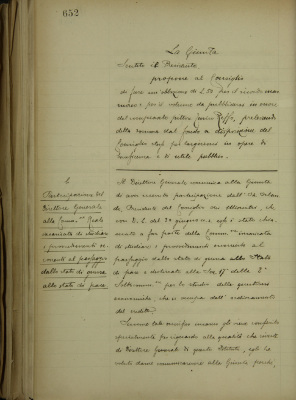 652
La Giunta
Sentito il Presidente
propone al Consiglio
di fare un'oblazione di L. 50 per il ricordo mar
moreo e per il volume da pubblicarsi in onore
del compianto pittore Enrico Reffo, prelevando
detta somma dal fondo a disposizione del
Consiglio stesso per largizioni in opere di
beneficenza e di utile pubblico.
Partecipazione del
Direttore Generale
alla Comm.ne Reale
incaricata di studiare
i provvedimenti oc-
correnti al passaggio
dallo stato di guerra
allo stato di pace.
Il Direttore Generale comunica alla Giunta
di aver avuto partecipazione dall'On. Orlan
do, Presidente del Consiglio dei Ministri, che
con D. L. del 30 giugno u.s. egli è stato chia
mato a far parte della Comm.ne incaricata
di studiare i provvedimenti occorrenti al
passaggio dallo stato di guerra allo stato
di pace e destinato alla Sez. della 2a
Sottocomm.ne per lo studio delle questioni
economiche, che si occupa dell'ordinamento
del credito.
tale incarico venne gli viene conferito
specialmente per riguardo alla qualità che riveste
di Direttore Generale di questo Istituto, egli ha
voluto darne comunicazione alla Giunta perché,